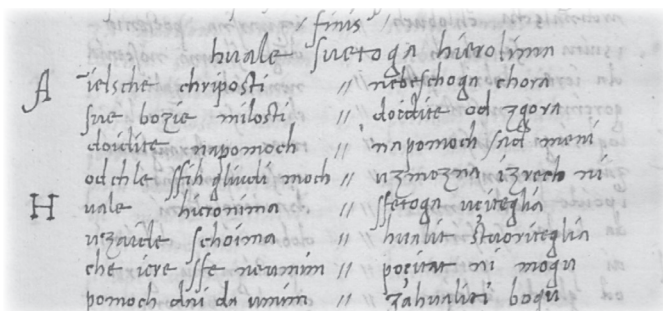 finis
hvale svetoga hierolima
A ielsche chriposti // nebeschoga chora
sve bozie milosti // doidite od zgora
doidite napomoch // napomoch sad meni
od chle ssih gliudi moch // uzmozna izrech ni
H uale hieronima // ssfetoga uciteglia
uzaide schoima // hualit stuoriteglia
che iere ssfe neumim // pocitat ni mogu
pomoch dni da umim // zahualiti bogu